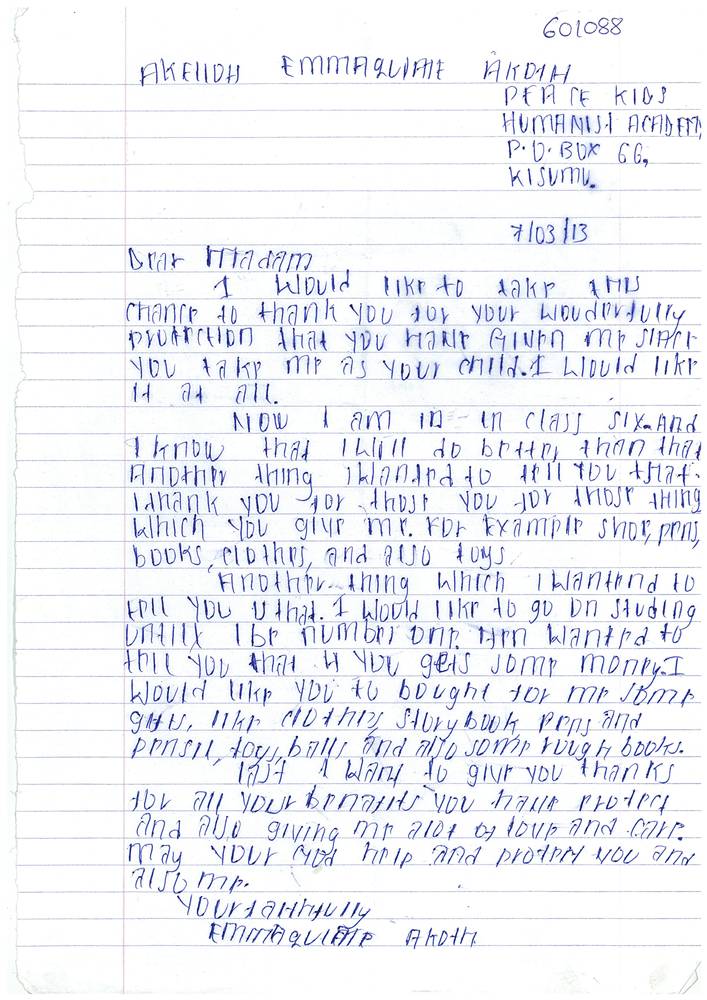 601088
AKEllOH EMMAQUlATE AKOTH
PEACE KIDS
HUMANIST ACADEM
P.O.BOX 66,
KISUMU.
7/03/13
Dear Madam
I Would like to take this
chance to thank you for your wouderfully
protection that you have Given me since
you take me as your child. I would like
it at all.
Now I am in - in class six. And
I know that I will do better than that
Another thing I wanted to tell you that.
I thank you for those you for those thing
which you give me. For Example shoe, pens,
books, clothes, and also toys.
Another thing which I wantend to
tell you is that. I would like to go on studing
untill I be number one. wanted to
tell you that if you gets some money. I
would like you to bought for me some
gifts, like clothes, storybook, pens and
pensil, toys, balls and also some rough books.
last I want to give you thanks
for all your benafits you have protect
and also giving me alot of love and care.
may your God help and protect you and
also me.
Your faithfully
EMMAQUlATE AKOTH